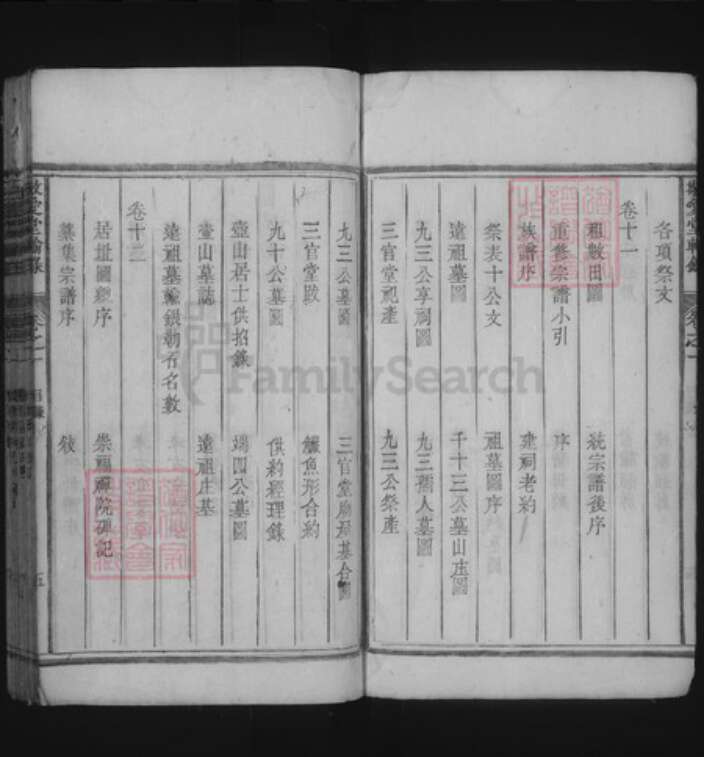 各項祭文
卷十一
祖數田圖 統宗譜後序
重修宗譜小引 序
族譜序 建祠老約
祭表十公文 祖墓圖序
遠祖墓圖 千十三公墓山庄圖
九三公享祠圖 九三孺人墓圖
三官堂祀產 九三公祭產
九三公墓圖 三官堂廟居基合圖
三官堂 鱖魚形合約
九十公墓圖 供約經理錄
壺山居士供招錄 端四公墓圖
壺山墓誌 遠祖庄基
遠祖墓輸銀助石名數
卷十三
居址圖總序 崇福禪院碑記
纂集宗譜序 敘
五
FamilySearch